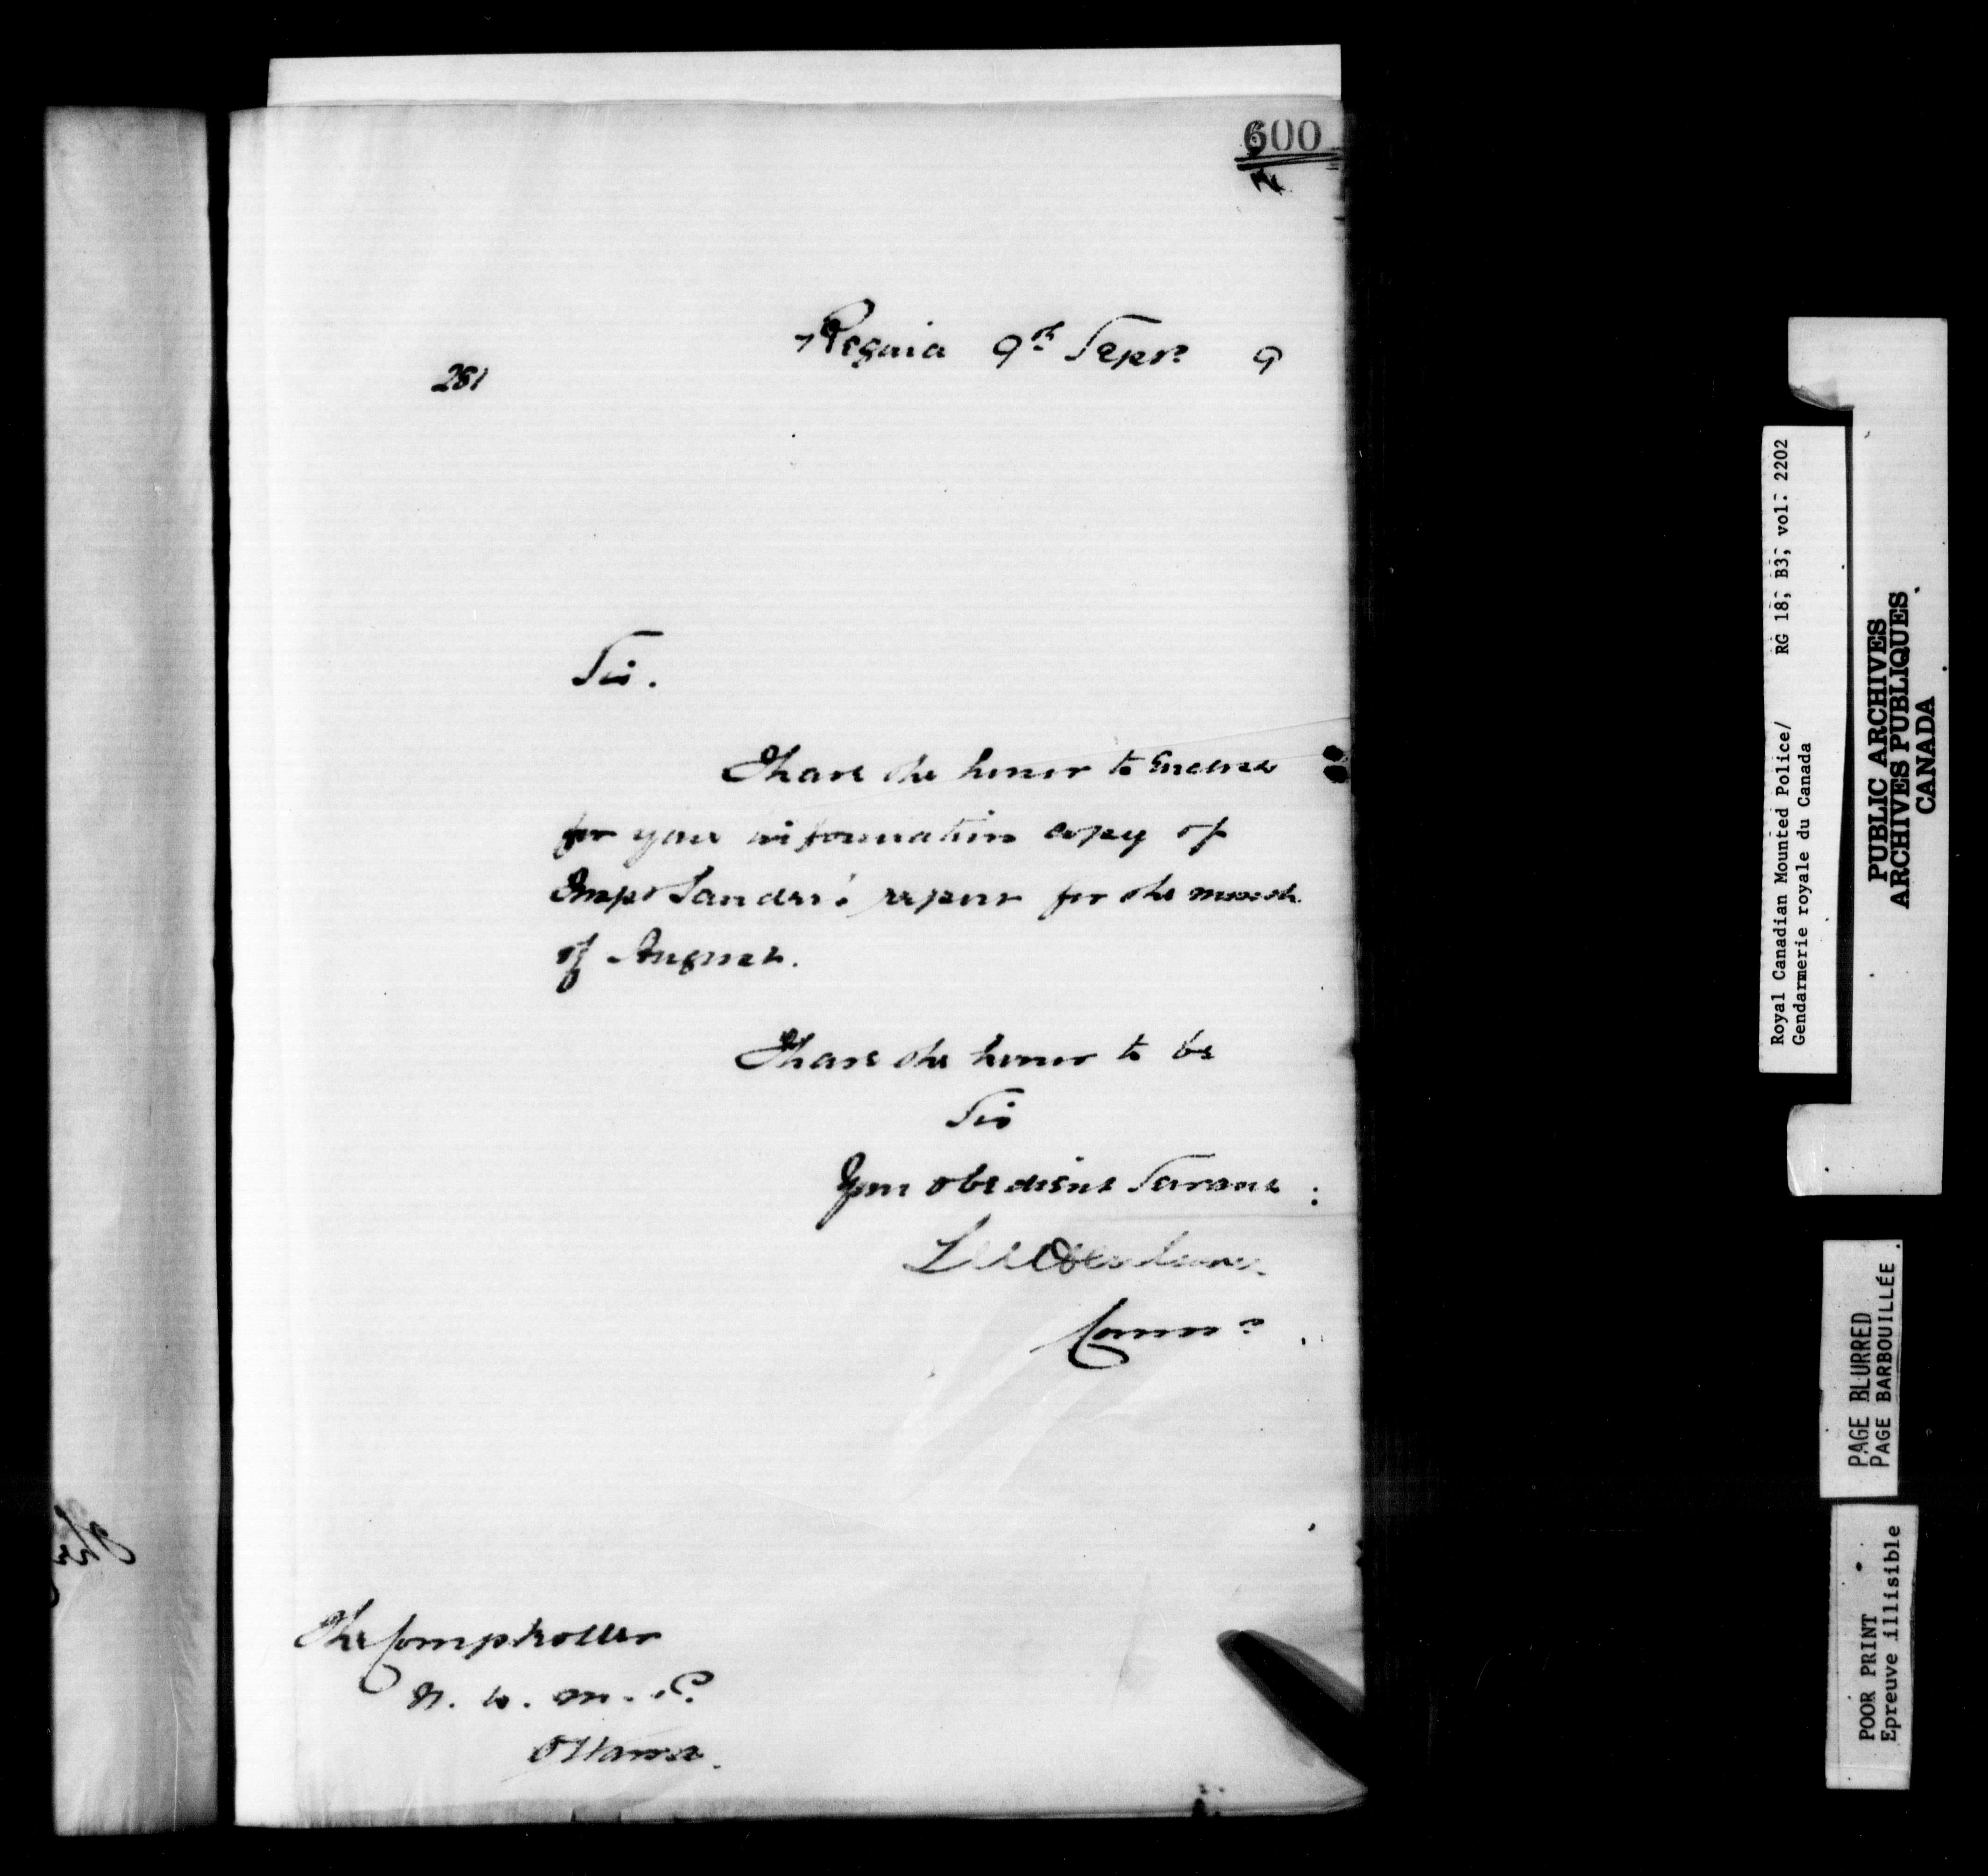 600
Regina 9th Sepr. 9
281
Sir.
I have the honor to Enclose
for your information copy of
Insp Sanders' report for the month
of August.
I have the honor to be
Sir
Your obedient Servant
Commr
The Comptroller
N. W. M. P.
Ottawa.
Royal Canadian Mounted Police/ RG 18, B3, vol. 2202
Gendarmerie royale du Canada
PUBLIC ARCHIVES
ARCHIVES PUBLIQUES
CANADA
PAGE BLURRED
PAGE BARBOUILLÉE
POOR PRINT
Epreuve illisible